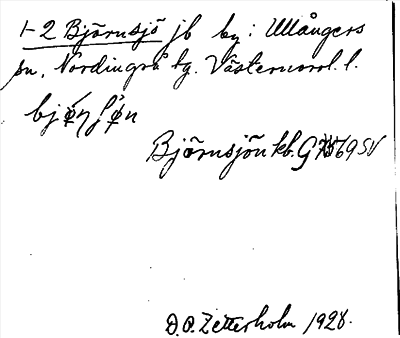 1-2 Björnsjö jb by: Ullångers
sn, Nordingrå tg. Västernorrl. l.
bjø̀n ʃø̀n
Björnsjön kb. G 69 SV
D.O. Zetterholm 1928.